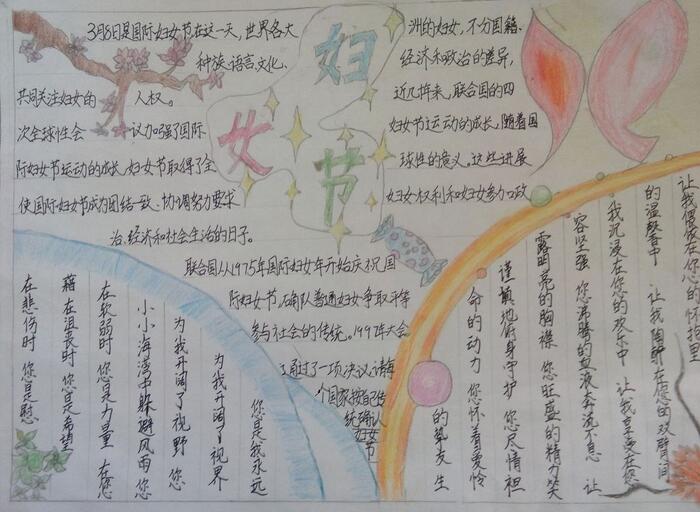 妇
女
节
3月8日是国际妇女节在这一天,世界各大
洲的妇女,不分国籍、
种族、语言、文化、
经济和政治的差异,
共同关注妇女的
人权。
近几年来,联合国的四
次全球性会
议加强了国际
妇女节运动的成长,随着国
际妇女节运动的成长,妇女节取得了全
球性的意义。这些进展
使国际妇女节成为团结一致、协调努力要求
妇女权利和妇女参加政
治、经济和社会生活的日子。
联合国从1975年国际妇女年开始庆祝国
际妇女节,确认普通妇女争取平等
参与社会的传统。1997年大会
通过了一项决议,请每
个国家按自己传
统确认
妇女
节
在悲伤时 您是慰
藉在沮丧时 您是希望
在软弱时 您是力量 在您
小小海湾中躲避风雨您
为我开阔了视野 您
为我开阔了视界
您是我永远
的挚友 生
命的动力 您怀着爱怜
谨慎地俯身守护 您尽情袒
露明亮的胸襟 您旺盛的精力笑
容坚强 您沸腾的血液奔流不息 让
我沉浸在您的欢乐中 让我享受在您
的温馨中 让我陶醉在您的双臂间
让我偎依在您的怀抱里